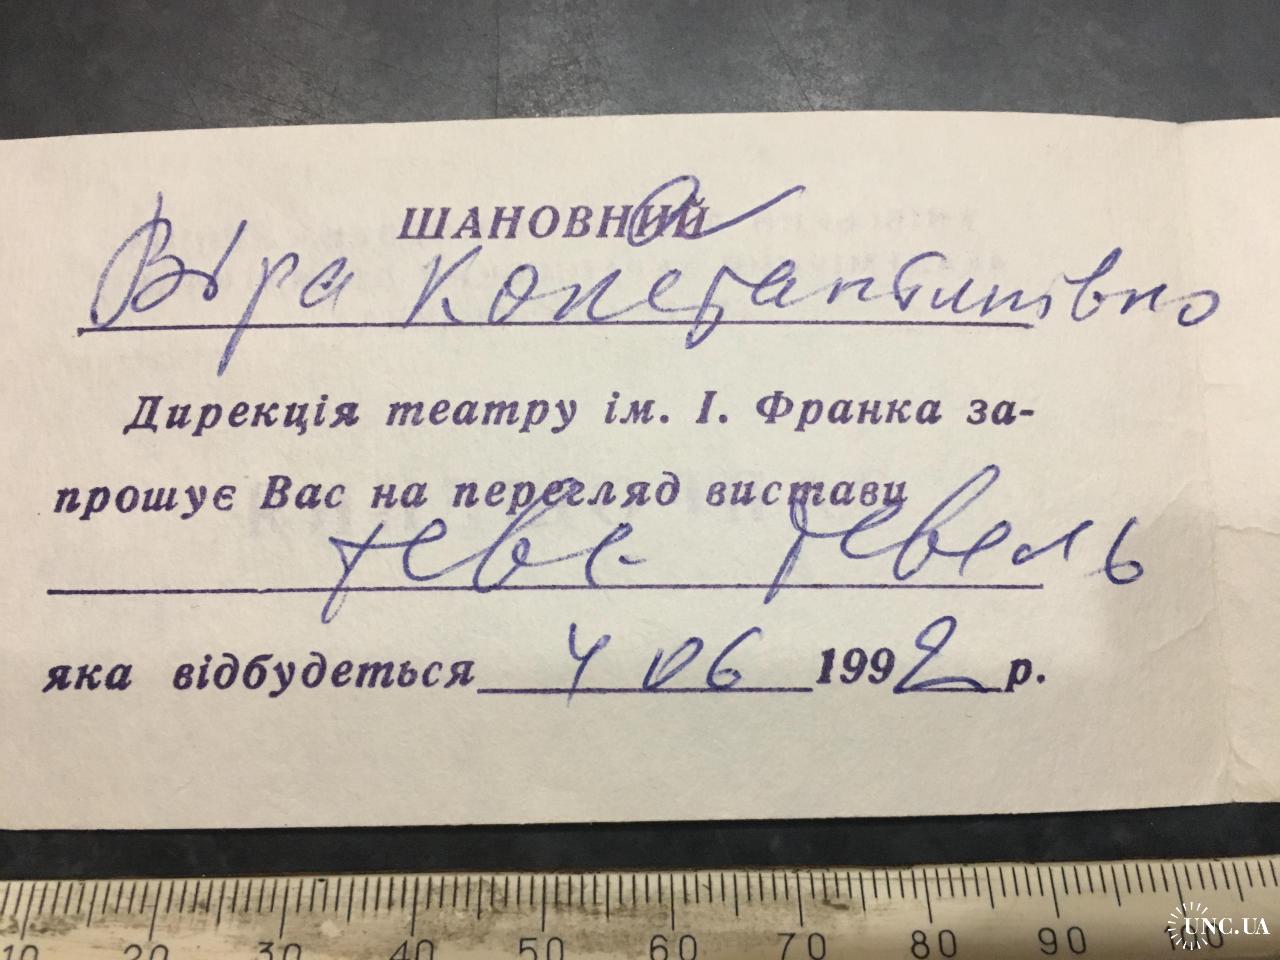 ШАНОВНИЙ а
Віра Константинівно
Дирекція театру ім. І. Франка за-
прошує Вас на перегляд вистави
тевье Тевель
яка відбудеться 4 06 1992 р.
10 20 30 40 50 60 70 80 90 100
UNC.UA